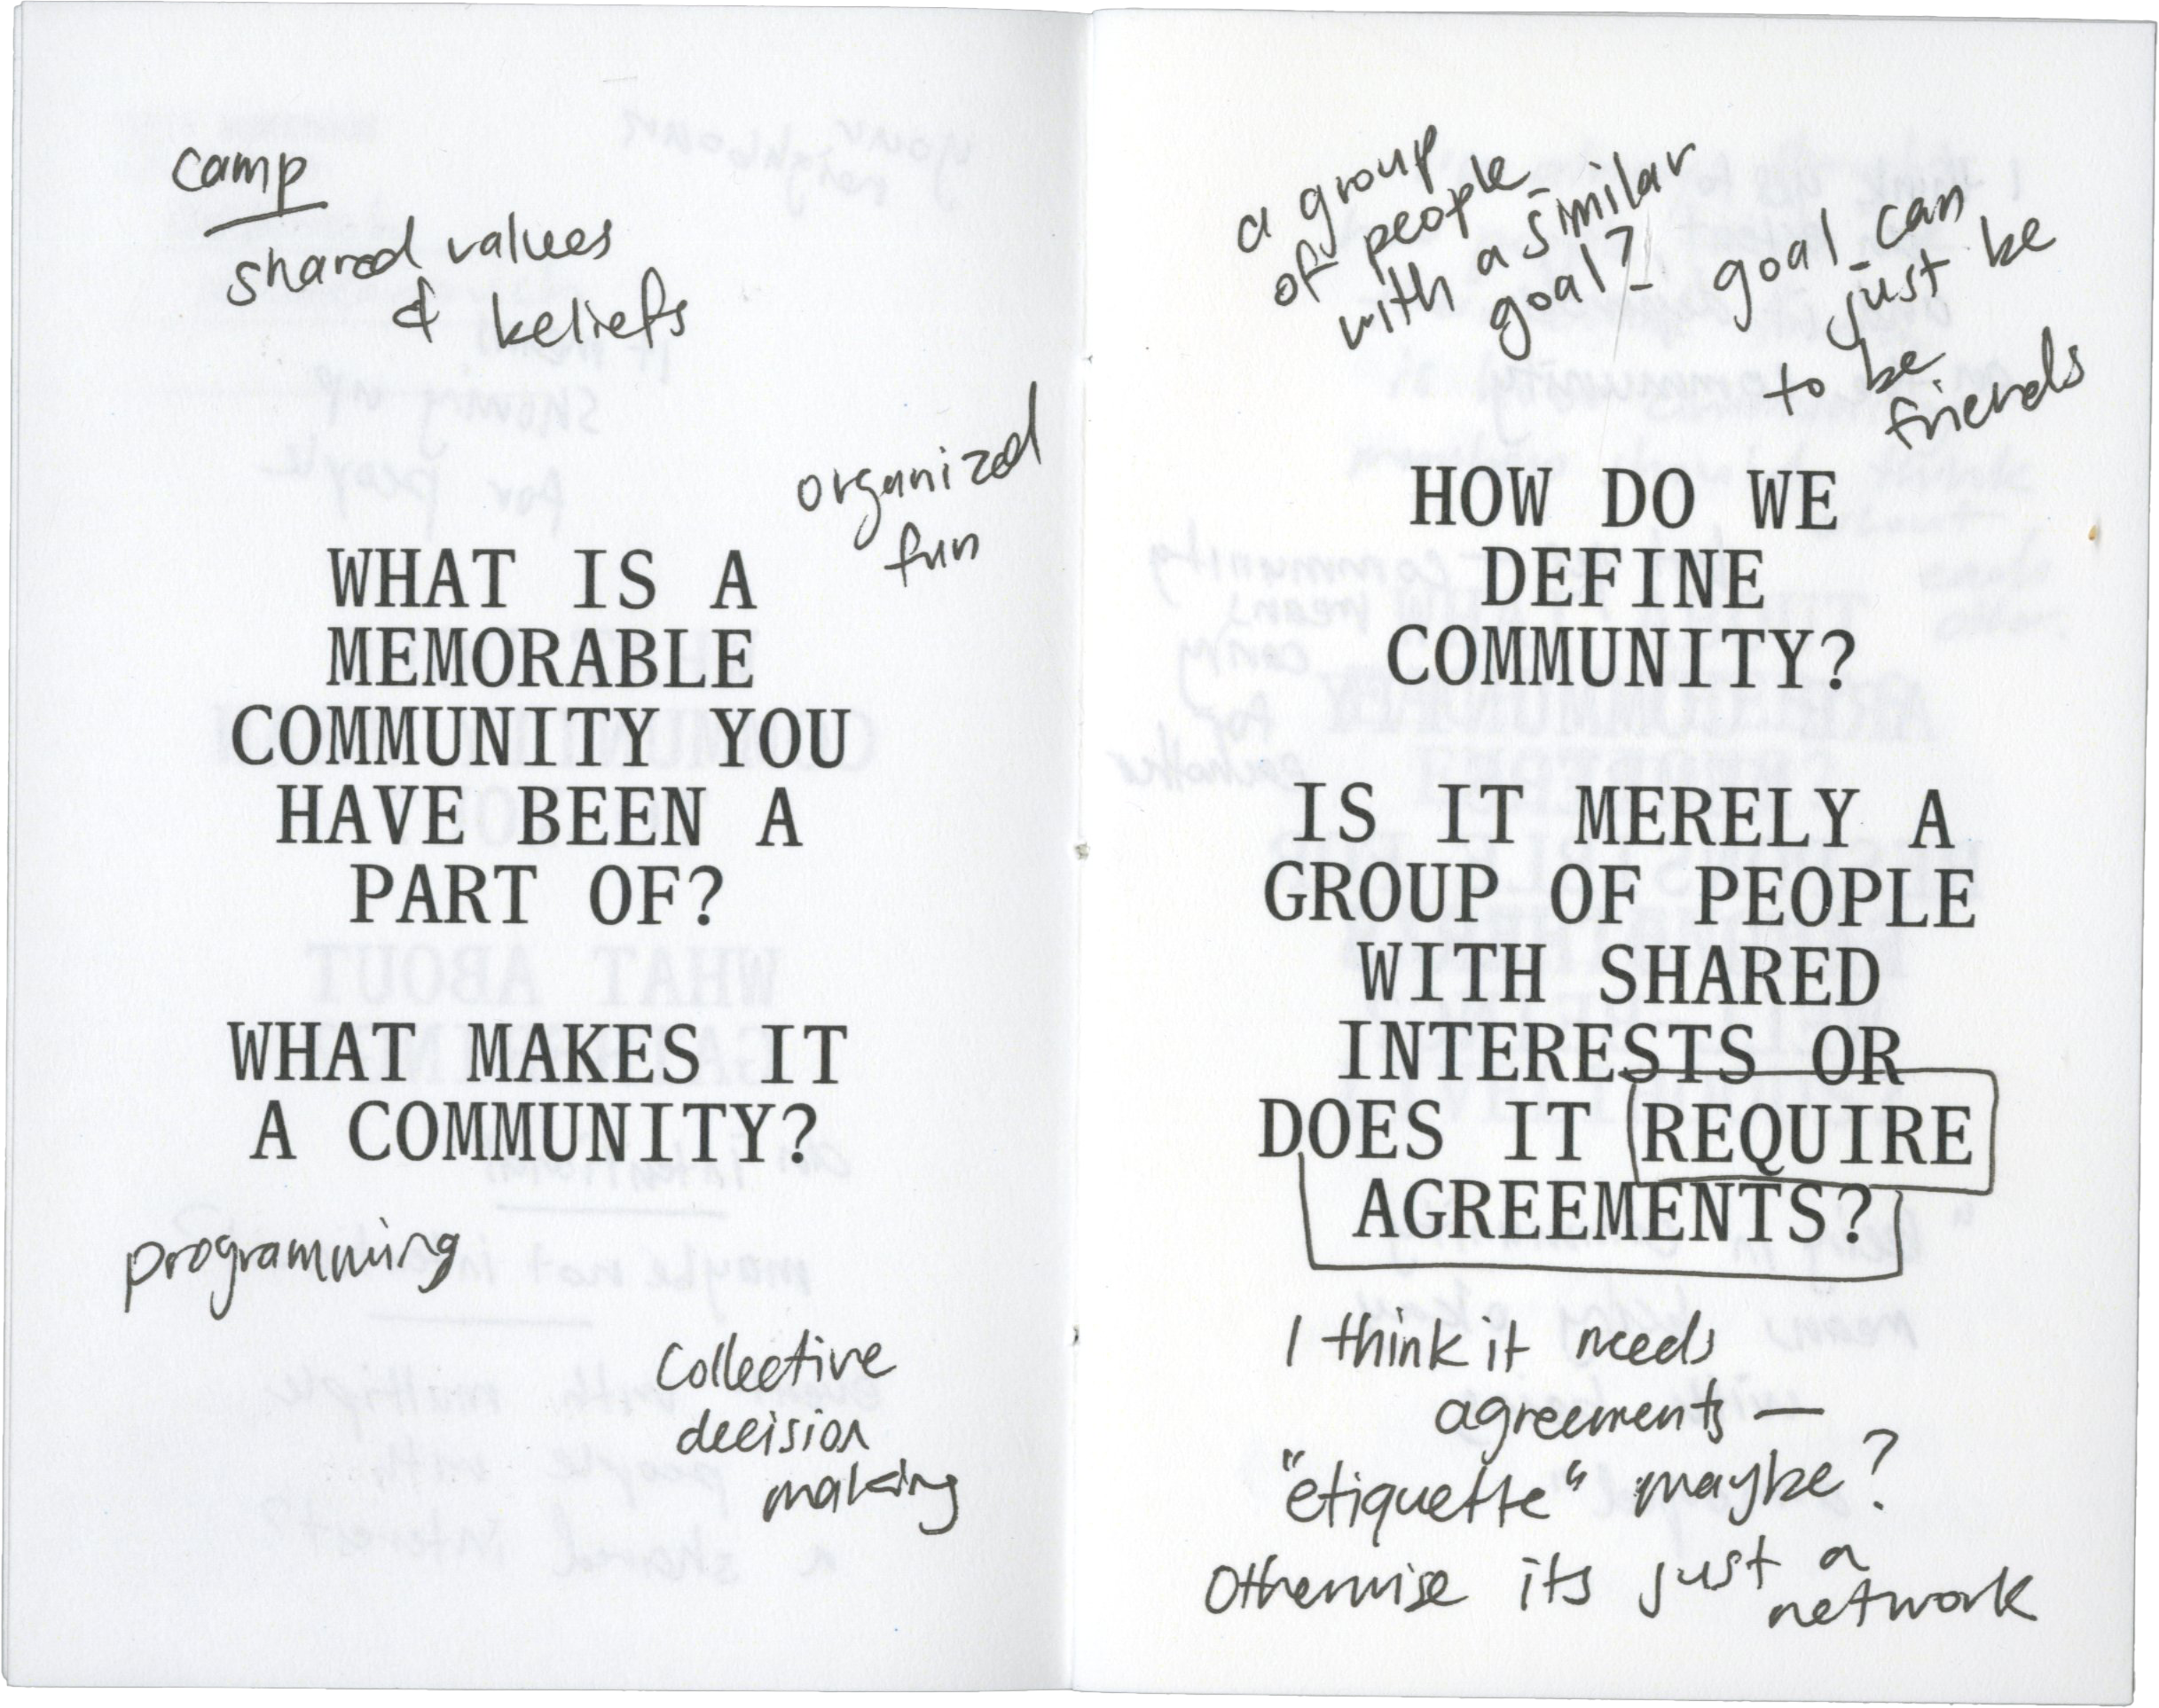 camp
shared values
& beliefs
organized
fun
WHAT IS A
MEMORABLE
COMMUNITY YOU
HAVE BEEN A
PART OF?
WHAT MAKES IT
A COMMUNITY?
programming
Collective
decision
making
a group
of people
with a similar
goal? - goal can
just be
to be
friends
HOW DO WE
DEFINE
COMMUNITY?
IS IT MERELY A
GROUP OF PEOPLE
WITH SHARED
INTERESTS OR
DOES IT REQUIRE
AGREEMENTS?
I think it needs
agreements —
"etiquette" maybe?
Otherwise its just a
network